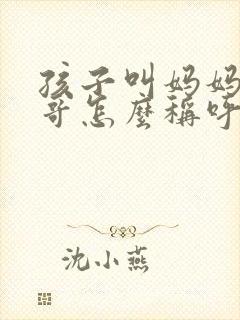 孩子叫妈妈
哥怎麼稱呼
沈小燕